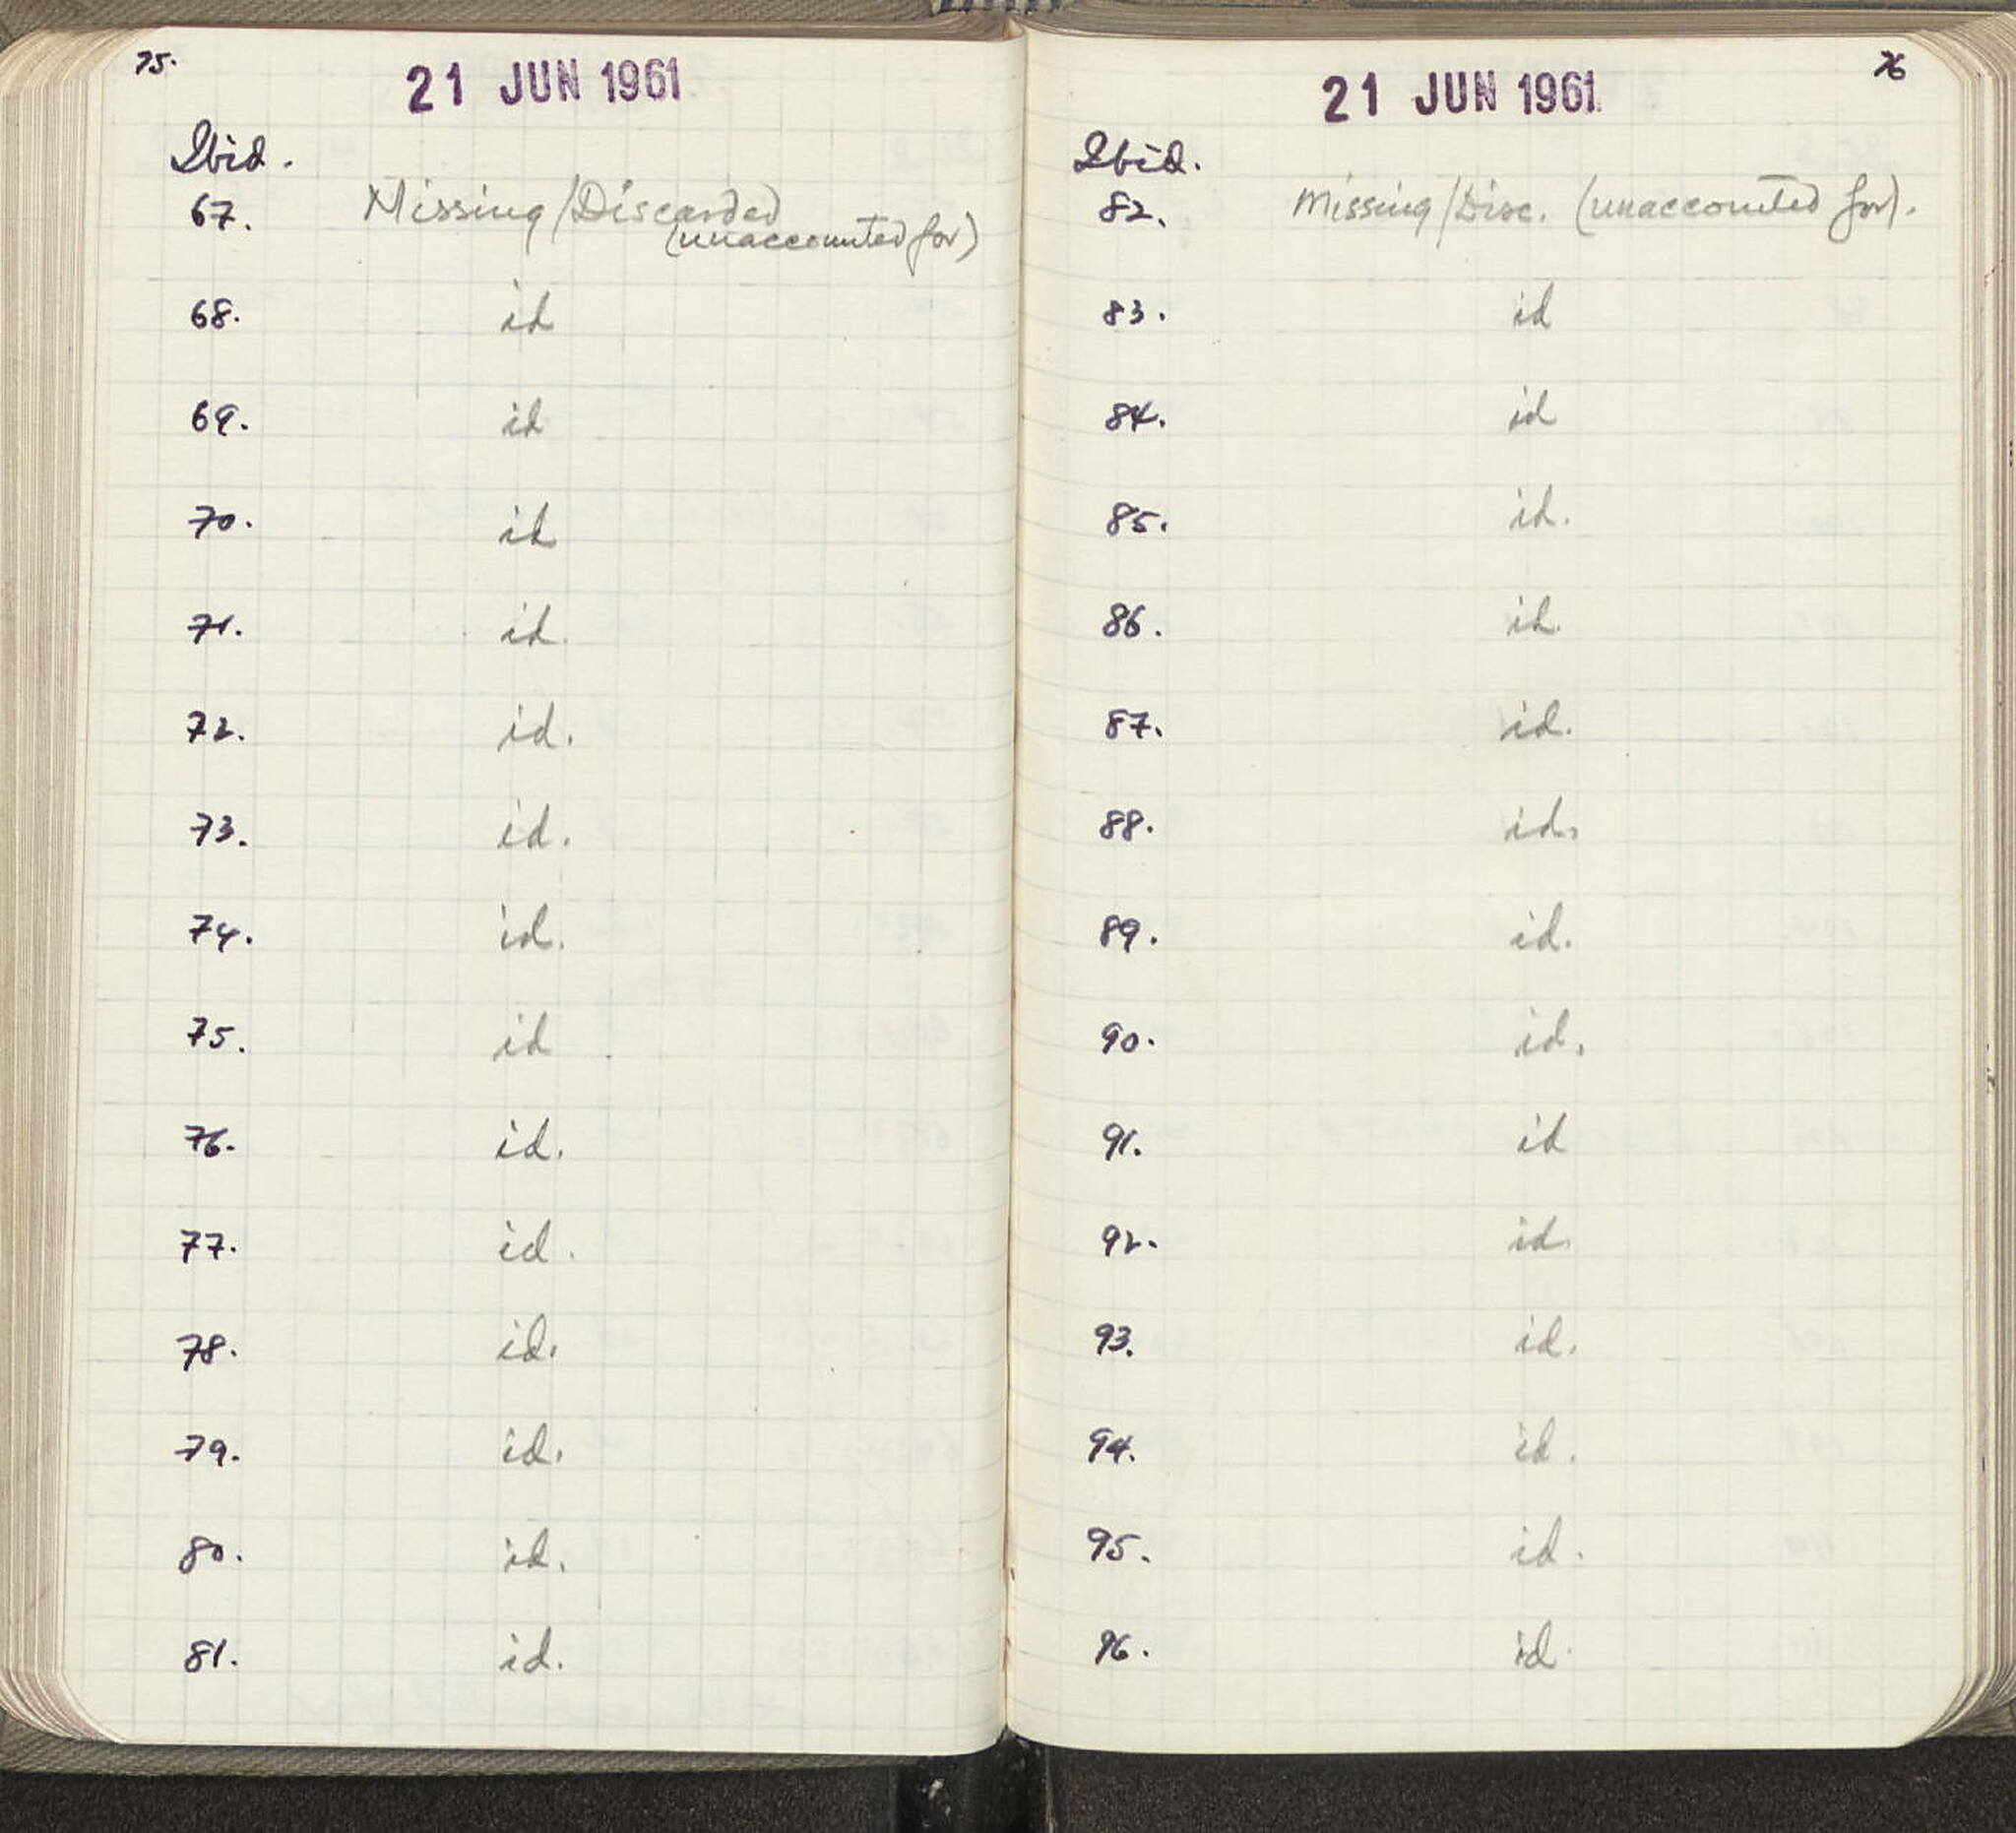 75.
21 JUN 1961
Ibid.
67. Missing/Discarded
(unaccounted for)
68. id
69. id
70. id
71. id.
72. id.
73. id.
74. id.
75. id
76. id.
77. id.
78. id.
79. id.
80. id.
81. id.
76
21 JUN 1961
Ibid.
82. Missing/Disc. (unaccounted for).
83. id
84. id
85. id.
86. id.
87. id.
88. id.
89. id.
90. id.
91. id
92. id.
93. id.
94. id.
95. id.
96. id.